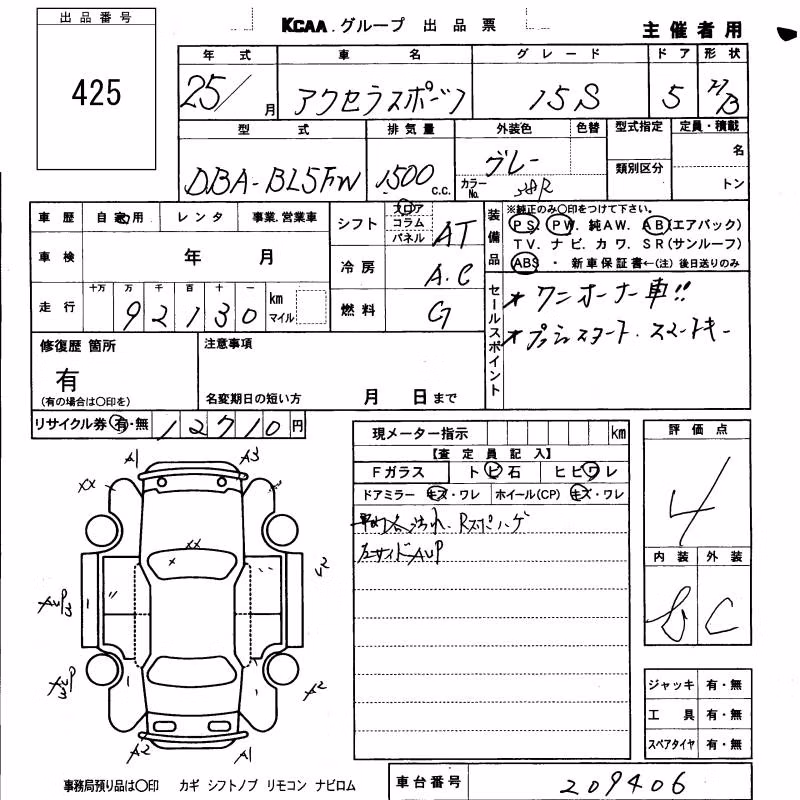 出品番号
425
KCAA.グループ 出品票
主催者用
年式 車名 グレード ドア 形状
25/ 月 アクセラスポーツ 15S 5 H/B
型式 排気量 外装色 色替 型式指定 定員・積載
DBA-BL5FW 1500 c.c. グレー
カラーNo. 38R
類別区分
名
トン
車歴 自家用 レンタ 事業.営業車
車検 年 月
走行 十万 万 千 百 十 一
92130 km マイル
シフト フロア コラム パネル AT
冷房 A.C
燃料 G
装備品
※純正のみ〇印をつけて下さい。
PS. PW. 純AW. AB(エアバック)
TV. ナビ. カワ. SR(サンルーフ)
ABS ・ 新車保証書←(注) 後日送りのみ
セールスポイント
★ワンオーナー車!!
★プッシュスタート.スマートキー
修復歴 箇所
有
(有の場合は〇印を)
注意事項
名変期日の短い方 月 日まで
リサイクル券 有・無 12710円
現メーター指示 km
【査定員記入】
Fガラス トビ石 ヒビワレ
ドアミラー キズ・ワレ ホイール(CP) キズ・ワレ
汚れ、Rスポハゲ
左サイドAUP
評価点
4
内装 外装
B C
A1 A3
XX
XX
X
A2
A2 A1
ジャッキ 有・無
工具 有・無
スペアタイヤ 有・無
事務局預り品は〇印 カギ シフトノブ リモコン ナビロム
車台番号 209406